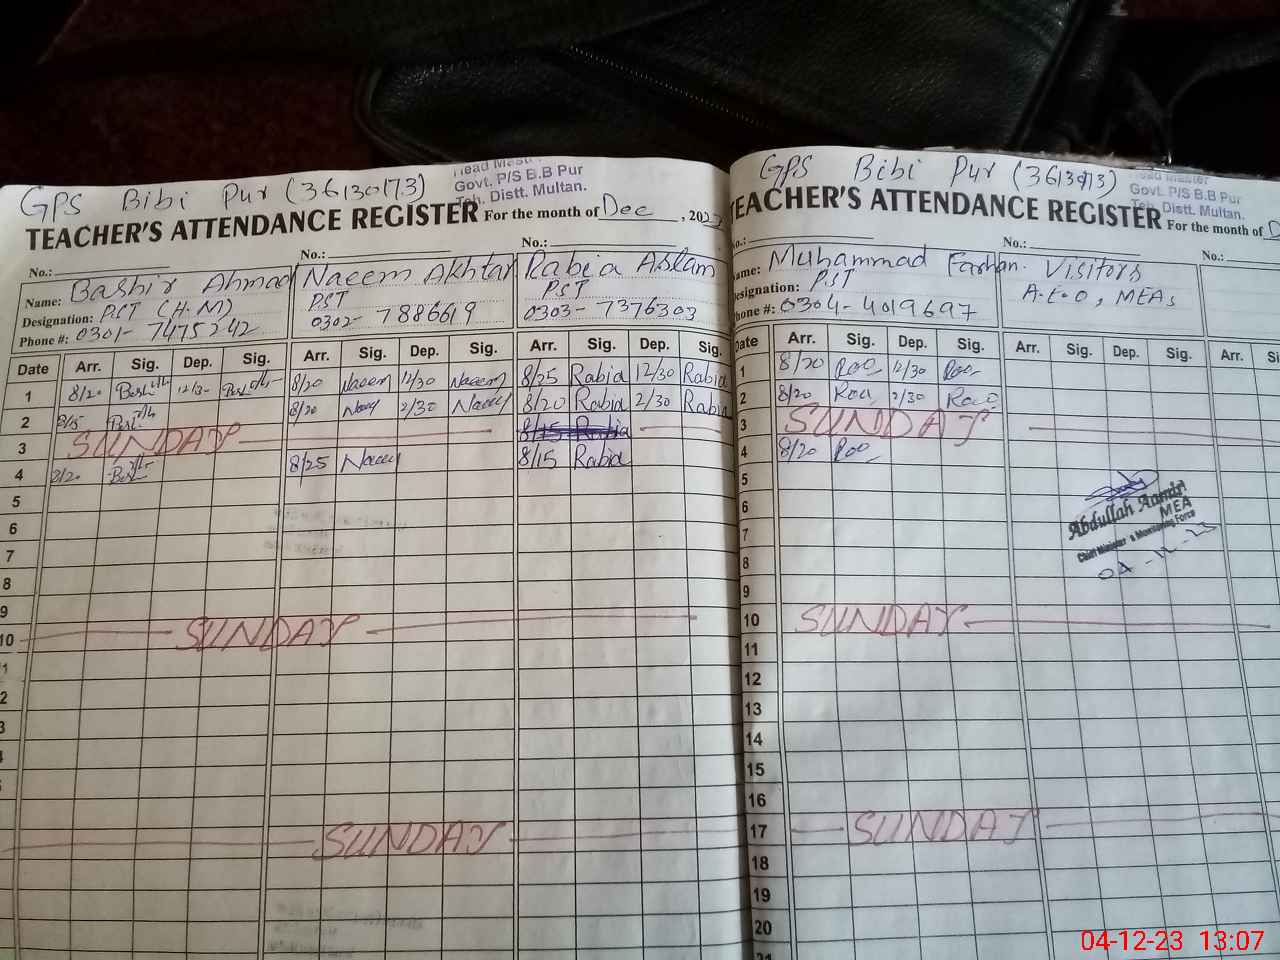 GPS Bibi Pur (36130173)
Govt. P/S B.B Pur
Teh. Distt. Multan.
TEACHER'S ATTENDANCE REGISTER For the month of Dec, 202
No.: No.: No.:
Name: Bashir Ahmad Naeem Akhtar Rabia Aslam
Designation: PST (H.M) PST PST
Phone #: 0301-7475242 0302-7886619 0303-7376303
Date Arr. Sig. Dep. Sig. Arr. Sig. Dep. Sig. Arr. Sig. Dep. Sig.
1 8/20 12/3- 8/20 Naeem 12/30 Naeem 8/25 Rabia 12/30 Rabia
2 8/15 8/20 2/30 8/20 Rabia 2/30 Rabia
3 SUNDAY 8/15 Rabia
4 8/20 8/25 8/15 Rabia
5
6
7
8
9
10 SUNDAY
SUNDAY
GPS Bibi Pur (3613013)
Head Master
Govt. P/S B.B Pur
Teh. Distt. Multan.
TEACHER'S ATTENDANCE REGISTER For the month of D
No.: No.: No.:
Name: Muhammad Farhan. Visitors
Designation: PST A.E.O, MEAs
Phone #: 0304-4019697
Date Arr. Sig. Dep. Sig. Arr. Sig. Dep. Sig. Arr.
1 8/20 12/30
2 8/20 2/30
3 SUNDAY
4 8/20
5
6
7
8
9
10 SUNDAY
11
12
13
14
15
16
17 SUNDAY
18
19
20
21
Abdullah Aamir
MEA
Chief Minister's Monitoring Force
04-12-23 13:07